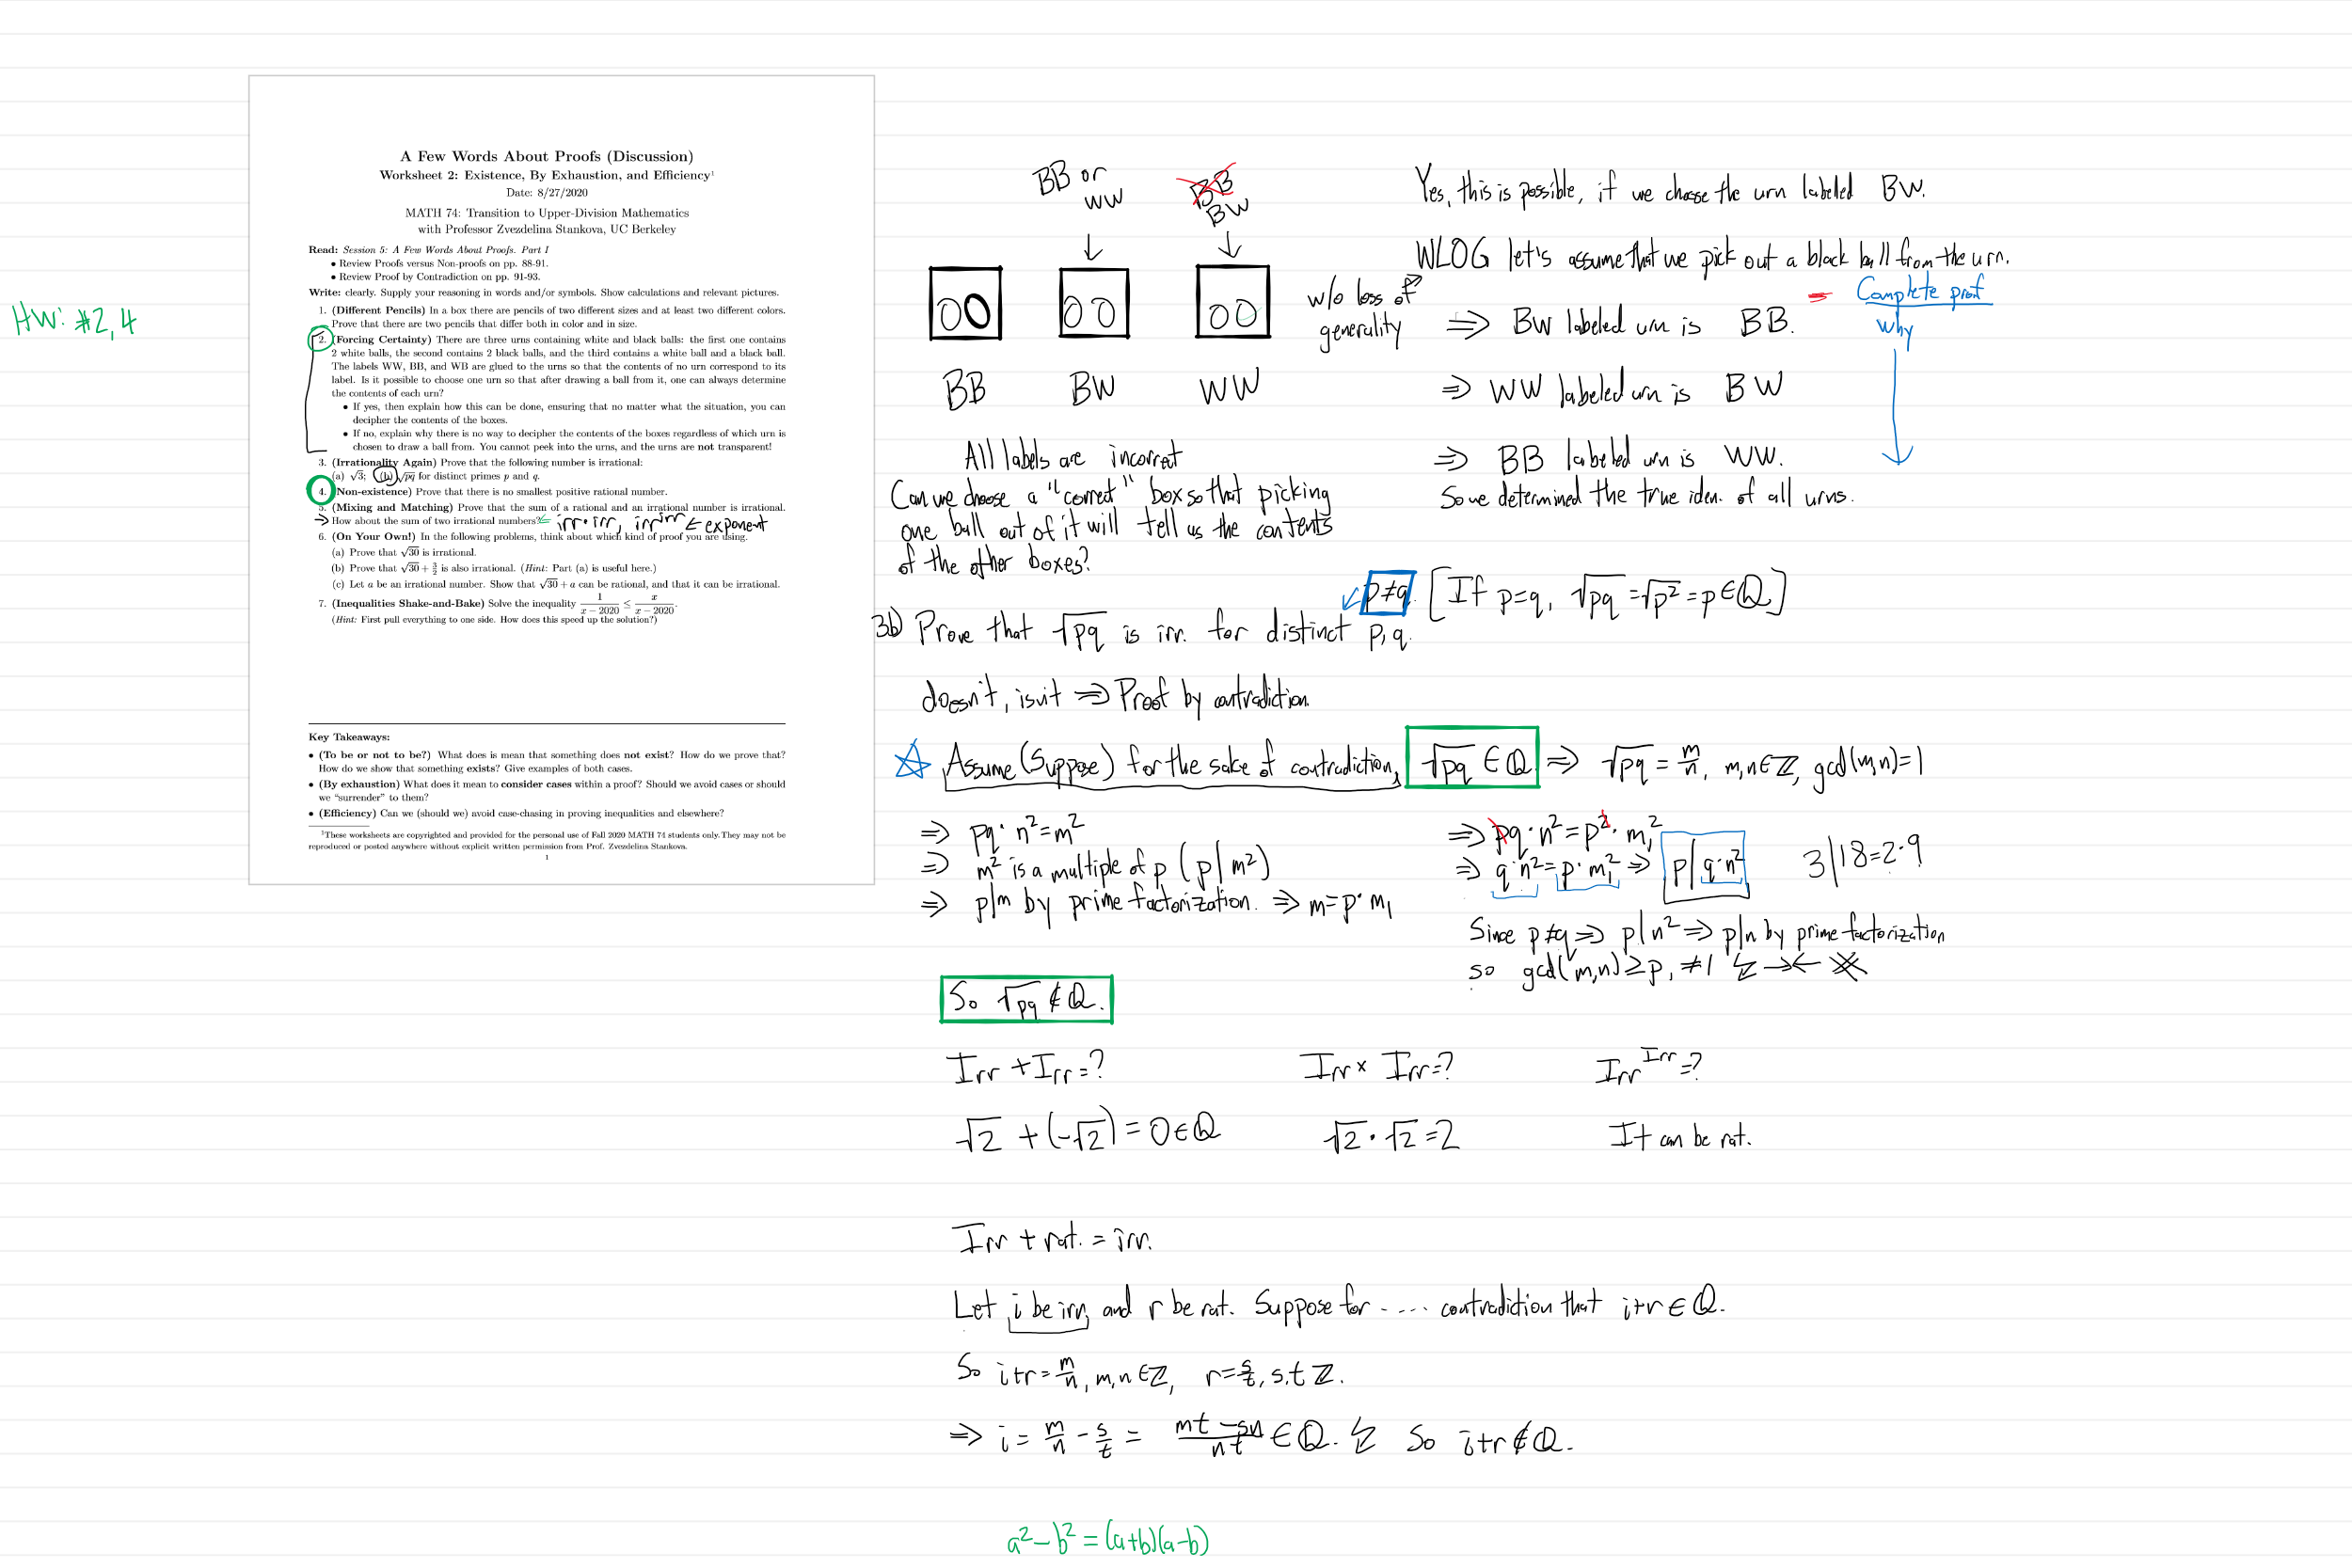 HW: #2,4
A Few Words About Proofs (Discussion)
Worksheet 2: Existence, By Exhaustion, and Efficiency¹
Date: 8/27/2020
MATH 74: Transition to Upper-Division Mathematics
with Professor Zvezdelina Stankova, UC Berkeley
Read: Session 5: A Few Words About Proofs. Part I
• Review Proofs versus Non-proofs on pp. 88-91.
• Review Proof by Contradiction on pp. 91-93.
Write: clearly. Supply your reasoning in words and/or symbols. Show calculations and relevant pictures.
1. (Different Pencils) In a box there are pencils of two different sizes and at least two different colors.
Prove that there are two pencils that differ both in color and in size.
2. (Forcing Certainty) There are three urns containing white and black balls: the first one contains
2 white balls, the second contains 2 black balls, and the third contains a white ball and a black ball.
The labels WW, BB, and WB are glued to the urns so that the contents of no urn correspond to its
label. Is it possible to choose one urn so that after drawing a ball from it, one can always determine
the contents of each urn?
• If yes, then explain how this can be done, ensuring that no matter what the situation, you can
decipher the contents of the boxes.
• If no, explain why there is no way to decipher the contents of the boxes regardless of which urn is
chosen to draw a ball from. You cannot peek into the urns, and the urns are not transparent!
3. (Irrationality Again) Prove that the following number is irrational:
(a) √3; (b) √pq for distinct primes p and q.
4. (Non-existence) Prove that there is no smallest positive rational number.
5. (Mixing and Matching) Prove that the sum of a rational and an irrational number is irrational.
→ How about the sum of two irrational numbers? ⇐ irr·irr, irr^irr ← exponent
6. (On Your Own!) In the following problems, think about which kind of proof you are using.
(a) Prove that √30 is irrational.
(b) Prove that √30 + 3/2 is also irrational. (Hint: Part (a) is useful here.)
(c) Let a be an irrational number. Show that √30 + a can be rational, and that it can be irrational.
7. (Inequalities Shake-and-Bake) Solve the inequality 1/(x − 2020) ≤ x/(x − 2020).
(Hint: First pull everything to one side. How does this speed up the solution?)
Key Takeaways:
• (To be or not to be?) What does is mean that something does not exist? How do we prove that?
How do we show that something exists? Give examples of both cases.
• (By exhaustion) What does it mean to consider cases within a proof? Should we avoid cases or should
we "surrender" to them?
• (Efficiency) Can we (should we) avoid case-chasing in proving inequalities and elsewhere?
¹These worksheets are copyrighted and provided for the personal use of Fall 2020 MATH 74 students only. They may not be
reproduced or posted anywhere without explicit written permission from Prof. Zvezdelina Stankova.
1
BB or
WW
BB
BW
BB BW WW
All labels are incorrect
Can we choose a "correct" box so that picking
one ball out of it will tell us the contents
of the other boxes?
Yes, this is possible, if we choose the urn labeled BW.
WLOG let's assume that we pick out a black ball from the urn.
w/o loss of
generality
⇒ BW labeled urn is BB.
Complete proof
why
⇒ WW labeled urn is BW
⇒ BB labeled urn is WW.
So we determined the true iden. of all urns.
p≠q. [If p=q, √pq = √p² = p ∈ ℚ]
3b) Prove that √pq is irr. for distinct p,q.
doesn't, isn't ⇒ Proof by contradiction.
☆ Assume (Suppose) for the sake of contradiction, √pq ∈ ℚ ⇒ √pq = m/n, m,n∈ℤ, gcd(m,n)=1
⇒ pq·n²=m²
⇒ m² is a multiple of p (p|m²)
⇒ p|m by prime factorization. ⇒ m=p·m₁
⇒ pq·n²=p²·m₁²
⇒ q·n²=p·m₁² ⇒ p|q·n²
3|18=2·9
Since p≠q ⇒ p|n² ⇒ p|n by prime factorization
so gcd(m,n)≥p, ≠1 ↯ →← ※
So √pq ∉ ℚ.
Irr + Irr=? Irr × Irr=? Irr^Irr=?
√2 + (-√2) = 0 ∈ ℚ √2·√2=2 It can be rat.
Irr + rat. = irr.
Let i be irr, and r be rat. Suppose for ..... contradiction that i+r ∈ ℚ.
So i+r = m/n, m,n ∈ ℤ, r = s/t, s,t ℤ.
⇒ i = m/n - s/t = (mt - sn)/nt ∈ ℚ. ↯ So i+r ∉ ℚ.
a²-b² = (a+b)(a-b)